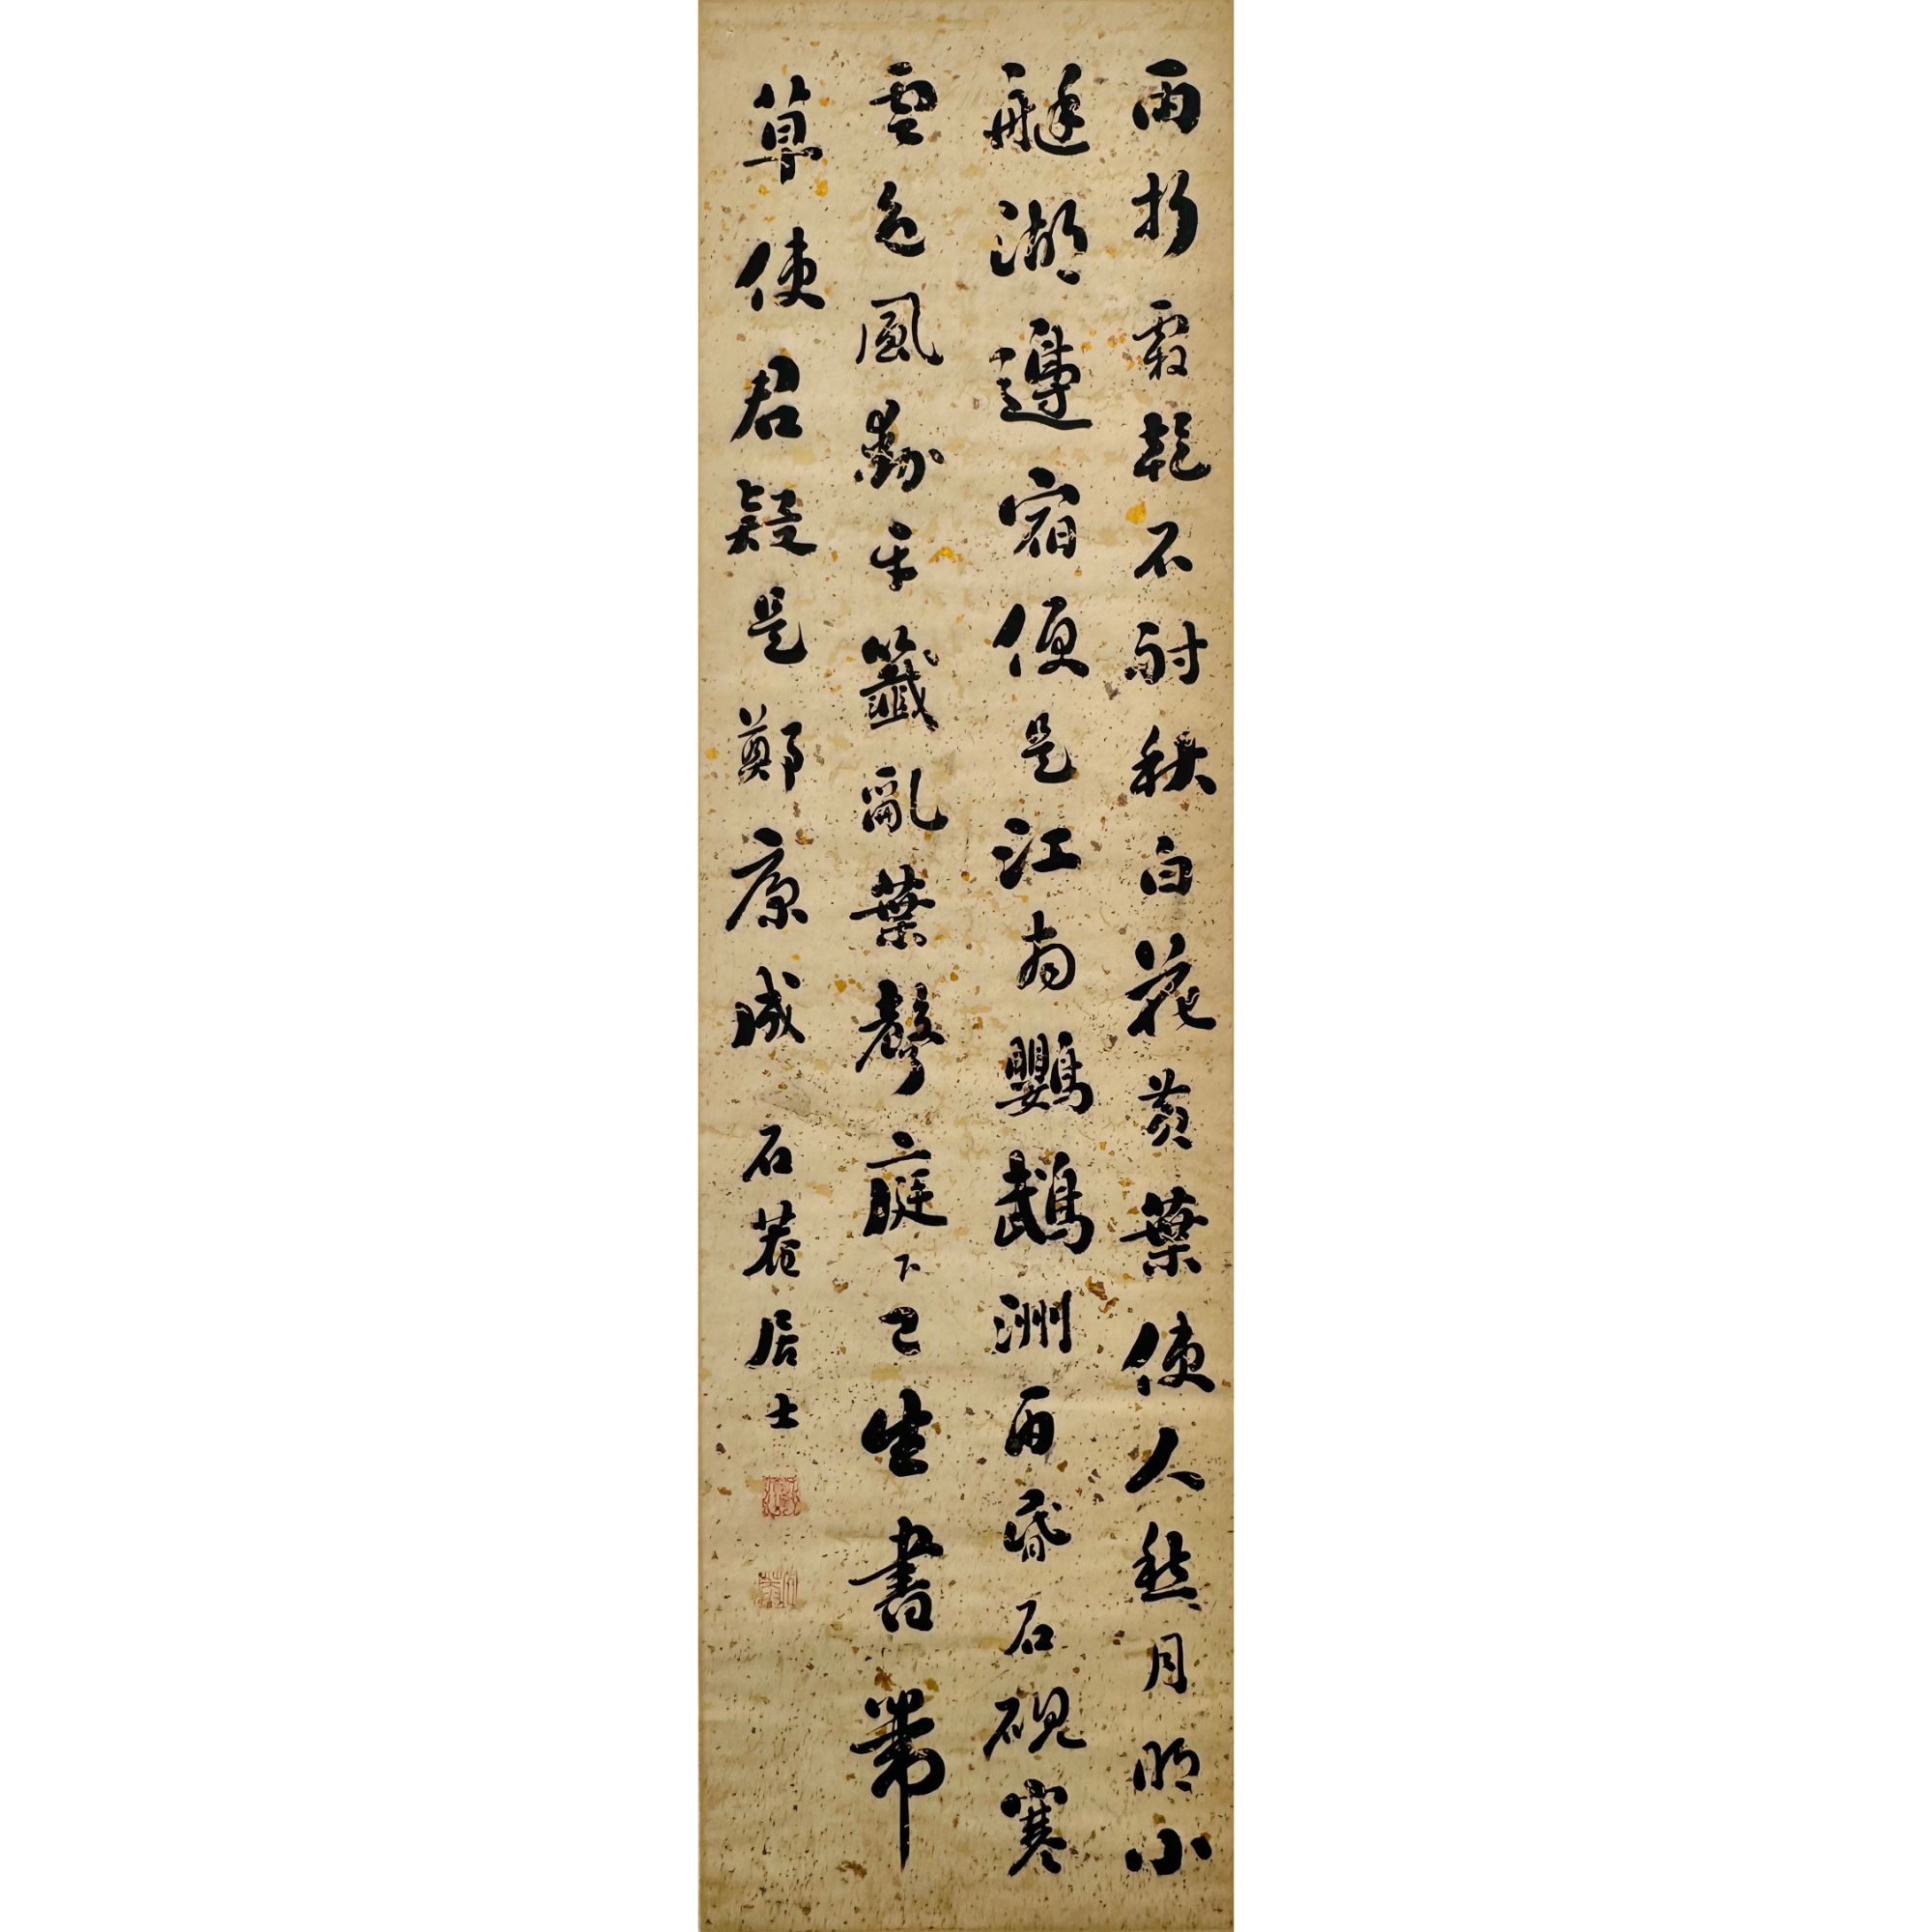 雨折霜乾不耐秋白花黃葉使人愁月明小
艇湖邊宿便是江南鸚鵡洲雨昏石硯寒
雲色風動牙籤亂葉聲庭下已生書帶
草使君疑是鄭康成 石菴居士